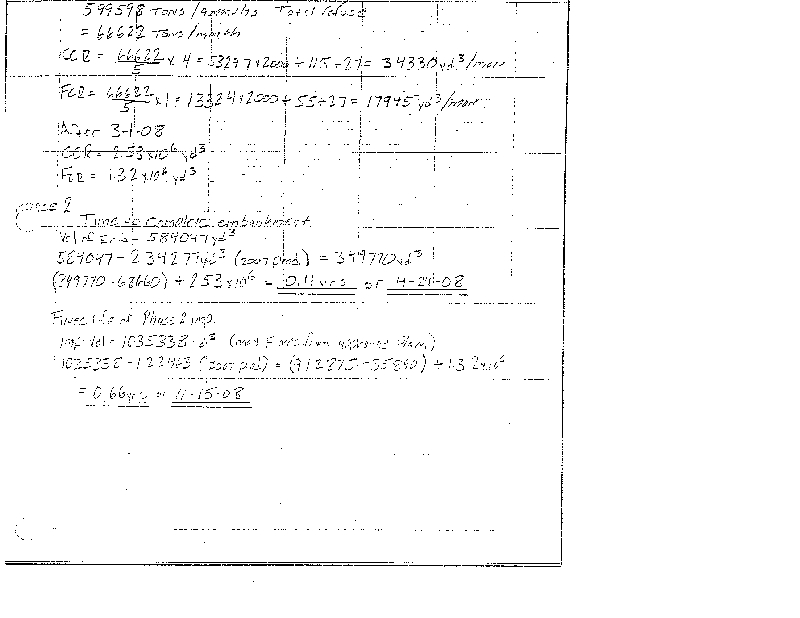 599598 Tons / 9 months Total refuse
= 66622 Tons / month
CCR = 66622/5 x 4 = 53297 x 2000 ÷ 115 ÷ 27 = 34330 yd³/mon
FCR = 66622/5 x 1 = 13324 x 2000 ÷ 55 ÷ 27 = 17945 yd³/mon
After 3-1-08
CCR = 2.53 x 10⁶ yd³
FCR = 1.32 x 10⁶ yd³
Phase 2
Time to complete embankment
Vol of Emb = 584047 yd³
584047 - 234277 yd³ (2007 prod.) = 349770 yd³
(349770 - 68660) ÷ 2.53 x 10⁶ = 0.11 yrs or 4-21-08
Fines life of Phase 2 imp.
Imp Vol = 1035338 yd³
1035338 - 122463 (2007 prod) = (912875 - 35890) ÷ 1.32 x 10⁶
= 0.66 yrs or 11-15-08